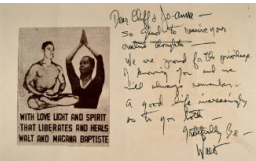 WITH LOVE LIGHT AND SPIRIT
THAT LIBERATES AND HEALS
WALT AND MAGANA BAPTISTE
Dear Cliff & Jo-anne —
So glad to receive your
thoughts —
We are proud for the privilege
of knowing you and we
will always remember.
A good life increasingly
so to you both —
Gratefully Be —
Walt